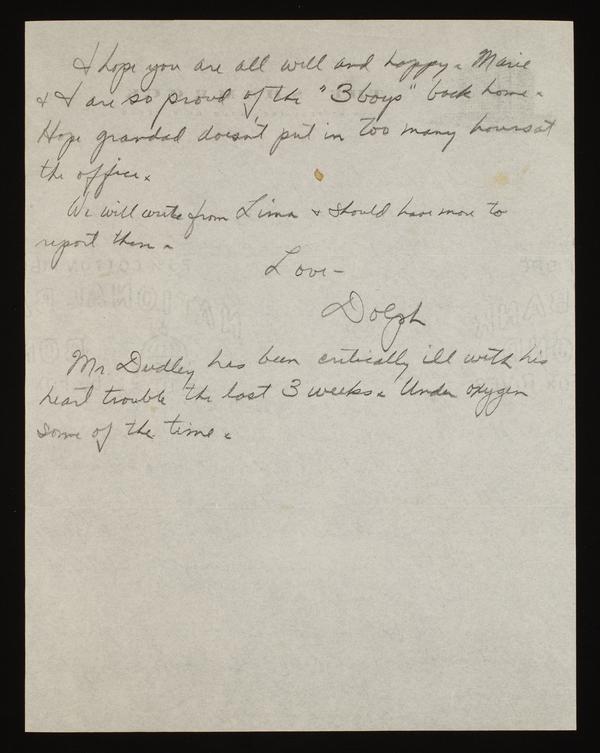 I hope you are all well and happy. Marie
& I are so proud of the "3 boys" back home.
Hope grandad doesn't put in too many hours at
the office.
We will write from Lima & should have more to
report then.
Love -
Dolph
Mr. Dudley has been critically ill with his
heart trouble the last 3 weeks. Under oxygen
some of the time.